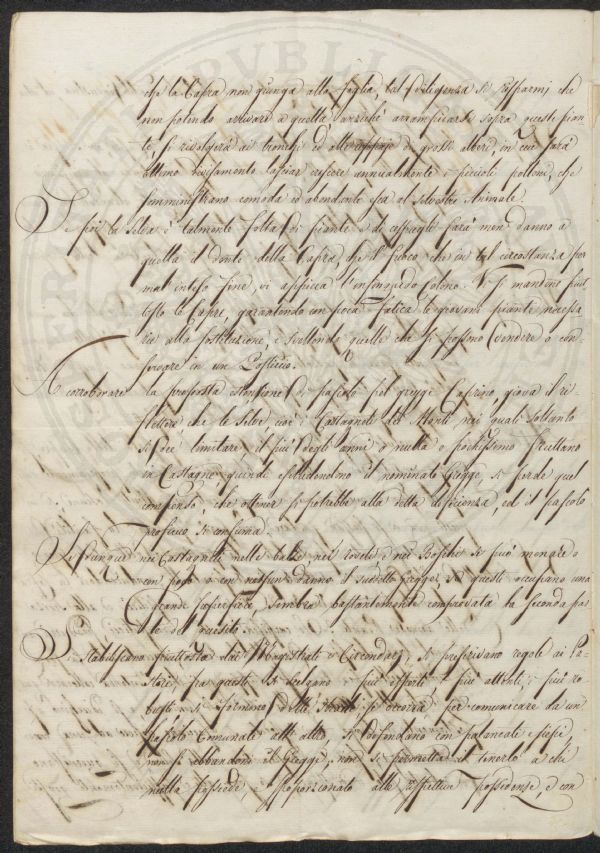 che la Capra non giunga alla foglia, tal diligenza si risparmi che
non potendo arrivare a quella anzichè arrampicarsi sopra queste pian
te, si rivolgerà ai tronchi ed alle di grossi alberi, in cui sarà
ottimo divisamento lasciar crescere annualmente i piccioli polloni, che
somministrano comoda ed abondante esca al silvestre Animale.
Se poi la Selva è talmente folta di piante e di cespugli farà men danno a
quella il dente della Capra che il fuoco che in tal circostanza per
mal inteso fine, vi appicca l'infingardo colono. Vi si mandino piut
tosto le Capre, garantendo con poca fatica le giovani piante necessa
rie alla sostituzione, e svellendo quelle che si possono vendere o con
servare in un
A corroborare la proposta estensione di pascolo pel gregge Caprino, giova il ri-
flettere che le Selve cioè i Castagneti dei Monti nei quali soltanto
si dee limitare il più degli anni o nulla o pochissimo fruttano
in Castagne quindi escludendolo il nominato Gregge, si perde quel
compenso, che ottener si potrebbe alla detta deficienza, ed il pascolo
proficuo si consuma.
Se dunque nei Castagneti nelle balze nei e nei Boschi si può menare o
con poco o con nessun danno il suddetto Gregge, se questi occupano una
grande superficie, sembra bastantemente comprovata la seconda par
te del quesito.
Si stabiliscano piuttosto dai Magistrati i Circondarj, si prescrivano regole ai Pa-
stori, fra questi si scelgano i più esperti i più attenti, i più ro
busti si formino delle strade se occorra per comunicare da un
pascolo Comunale all' altro, si difendino con palancole e siepi
non si abbandoni il Gregge, non si permetta il tenerlo a chi
nulla possiede, e proporzionato alle rispettive possidenze, e con